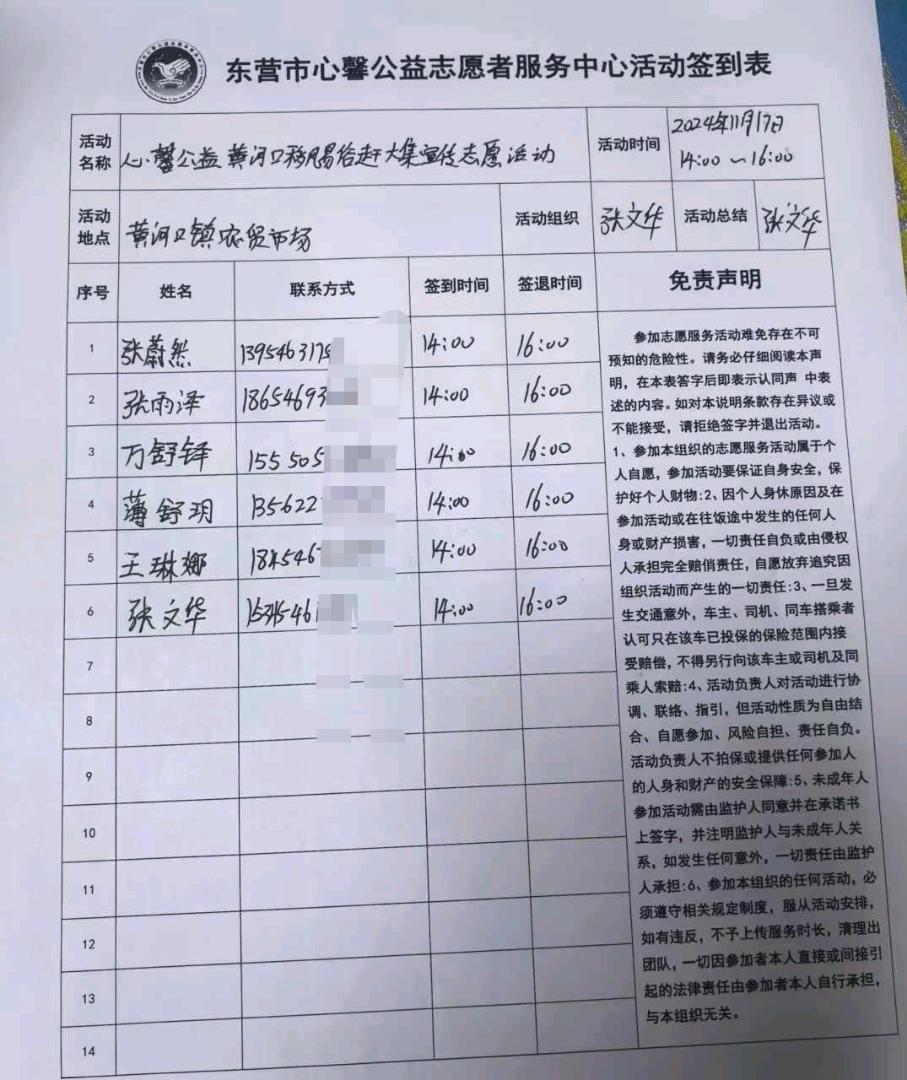 东营市心馨公益志愿者服务中心活动签到表
活动名称 心馨公益黄河口移风易俗赶大集宣传志愿活动 活动时间 2024年11月17日 14:00~16:00
活动地点 黄河口镇农贸市场 活动组织 张文华 活动总结 张文华
序号 姓名 联系方式 签到时间 签退时间 免责声明
1 张蔚然 1395463175 14:00 16:00
2 张雨泽 18654693 14:00 16:00
3 万舒铎 155 505 14:00 16:00
4 薄舒玥 135622 14:00 16:00
5 王琳娜 14:00 16:00
6 张文华 14:00 16:00
7
8
9
10
11
12
13
14
参加志愿服务活动难免存在不可
预知的危险性。请务必仔细阅读本声
明，在本表答字后即表示认同声 中表
述的内容。如对本说明条款存在异议或
不能接受，请拒绝签字并退出活动。
1、参加本组织的志愿服务活动属于个
人自愿，参加活动要保证自身安全，保
护好个人财物:2、因个人身休原因及在
参加活动或在往饭途中发生的任何人
身或财产损害，一切责任自负或由侵权
人承担完全赔俏责任，自愿放弃追究因
组织活动而产生的一切责任:3、一旦发
生交通意外，车主、司机、同车搭乘者
认可只在该车已投保的保险范围内接
受赔偿，不得另行向该车主或司机及同
乘人索赔:4、活动负责人对活动进行协
调、联络、指引，但活动性质为自由结
合、自愿参加、风险自担、责任自负。
活动负责人不拍保或提供任何参加人
的人身和财产的安全保障:5、未成年人
参加活动需由监护人同意并在承诺书
上签字，并注明监护人与未成年人关
系，如发生任何意外，一切责任由监护
人承担:6、参加本组织的任何活动，必
须遵守相关规定制度，服从活动安排，
如有违反，不予上传服务时长，清理出
团队，一切因参加者本人直接或间接引
起的法律责任由参加者本人自行承担，
与本组织无关。